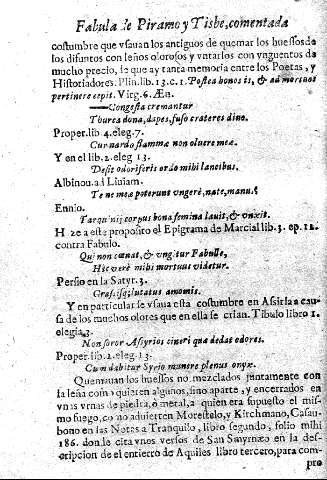 Fabula de Piramo y Tisbe, comentada
costumbre que vsauan los antiguos de quemar los huessos de
los difuntos con leños olorosos y vntarlos con vnguentos de
mucho precio, de que ay tanta memoria entre los Poetas, y
Historiadores. Plin. lib. 13. c. 1. Postea honos is, & ad mortuos
pertinere cepit. Virg. 6. Æn.
Congesta cremantur
Thurea dona, dapes, fuso crateres oliuo.
Proper. lib 4. eleg. 7.
Cur nardo flammæ non oluere meæ.
Y en el lib. 2. eleg 13.
Desit odoriferis ordo mihi lancibus.
Albinou. ad Liuiam.
Te ne meæ poterunt vngere, nate, manus?
Ennio.
Tarquinij corpus bona femina lauit, & vnxit.
Haze a este proposito el Epigrama de Marcial lib. 3. ep. 12.
contra Fabulo.
Qui non cœnat, & vngitur Fabulle,
Hic verè mihi mortuus videtur.
Persio en la Satyr. 3.
Crassisq; lutatus amomis.
Y en particular se vsaua esta costumbre en Assiria a cau-
sa de los muchos olores que en ella se crian. Tibulo libro 1.
elegia 3.
Non soror Assyrios cineri quæ dedat odores.
Proper. lib. 2. eleg. 13.
Cum dabitur Syrio munere plenus onyx.
Quemauan los huessos no mezclados juntamente con
la leña como quieren algunos, sino aparte, y encerrados en
vnas vrnas de piedra, ò metal, a quien era supuesto el mis-
mo fuego, como aduierten Morestelo, y Kirchmano, Casau-
bono en las Notas a Tranquilo, libro segundo, folio mihi
186. donde cita vnos versos de San Smyrnæo en la des-
cripcion de el entierro de Aquiles libro tercero, para com-
pro